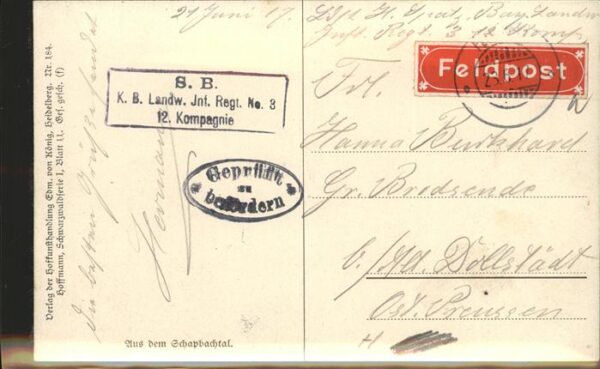 21 Juni 17.
H. Spatz, Bay. Landw.
Inft. Regt. 3 12 Komp.
Feldpost
S. B.
K. B. Landw. Jnf. Regt. No. 3
12. Kompagnie
Geprüft
zu
befördern
Frl.
Hanna Burkhard
Gr. Bredsende
b./ Dollstädt
Ost. Preussen
Die besten Grüße sendet
Hermann
Aus dem Schapbachtal.
Verlag der Hofkunsthandlung Edm. von König, Heidelberg. Nr. 184.
Hoffmann, Schwarzwaldserie I, Blatt 11. Ges. gesch. (f)